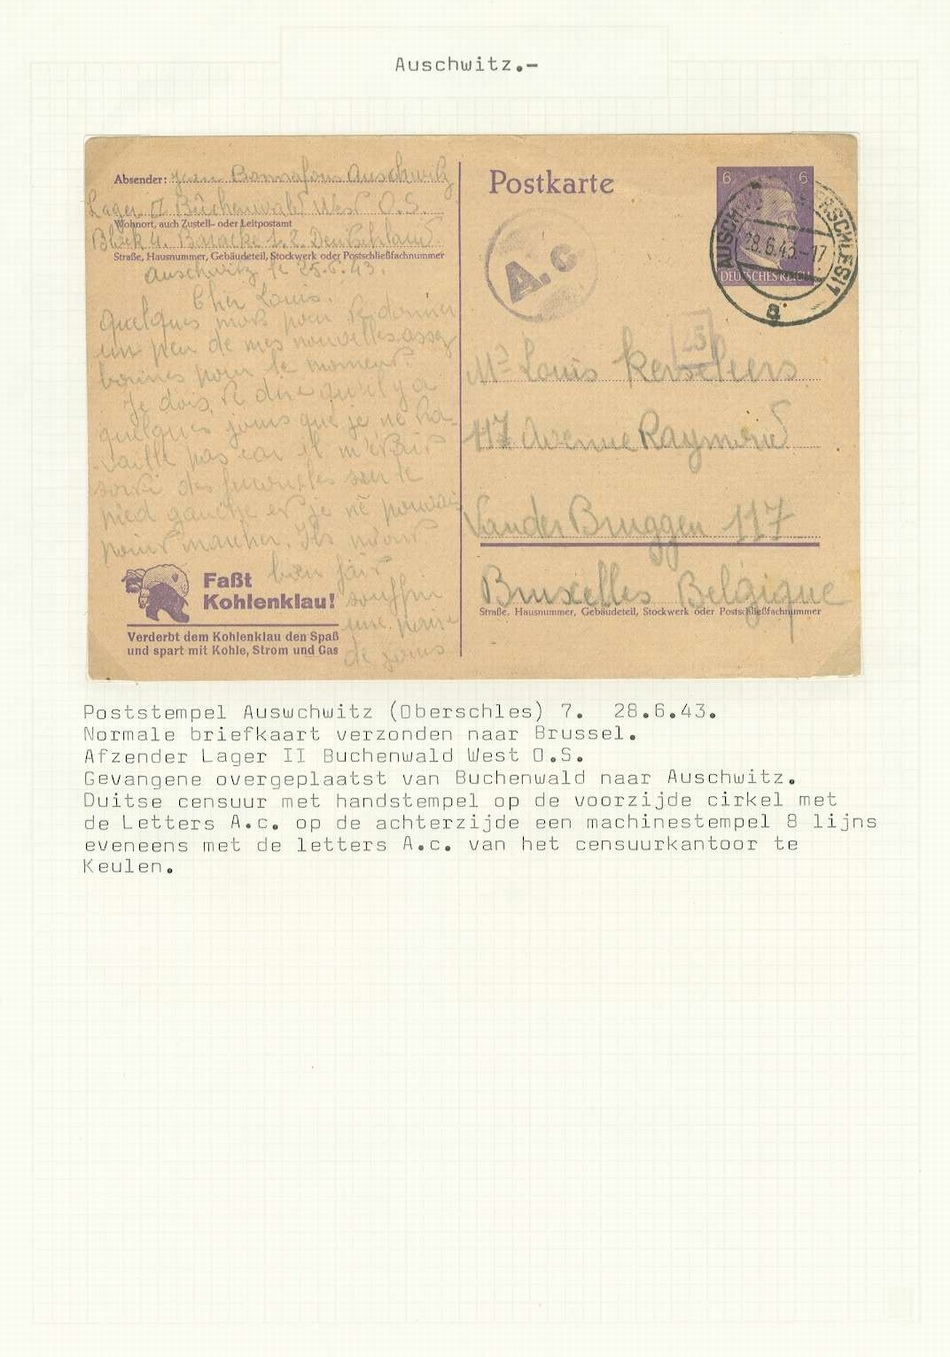 Auschwitz.-
Absender: Bonnafous Auschwitz
Lager II Buchenwald West O.S.
Wohnort, auch Zustell- oder Leitpostamt
Block 4. Baracke Deutschland
Straße, Hausnummer, Gebäudeteil, Stockwerk oder Postschließfachnummer
Auschwitz le 25.6.43.
Cher Louis.
Quelques mots pour te donner
un peu de mes nouvelles assez
bonnes pour le moment.
Je dois te dire qu'il y a
quelques jours que je ne tra-
vaille pas car il m'était
sorti des furoncles sur le
pied gauche et je ne pouvais
point marcher. Ils m'ont
bien fait
souffrir
une
de jours
Faßt
Kohlenklau!
Verderbt dem Kohlenklau den Spaß
und spart mit Kohle, Strom und Gas
Postkarte
6 6
DEUTSCHES REICH
AUSCHWITZ (OBERSCHLES) 1
28.6.43-17
a
A.c
25
Mr Louis Kerseleers
117 Avenue Raymond
Vander Bruggen 117
Bruxelles Belgique
Straße, Hausnummer, Gebäudeteil, Stockwerk oder Postschließfachnummer
Poststempel Auswchwitz (Oberschles) 7. 28.6.43.
Normale briefkaart verzonden naar Brussel.
Afzender Lager II Buchenwald West O.S.
Gevangene overgeplaatst van Buchenwald naar Auschwitz.
Duitse censuur met handstempel op de voorzijde cirkel met
de Letters A.c. op de achterzijde een machinestempel 8 lijns
eveneens met de letters A.c. van het censuurkantoor te
Keulen.